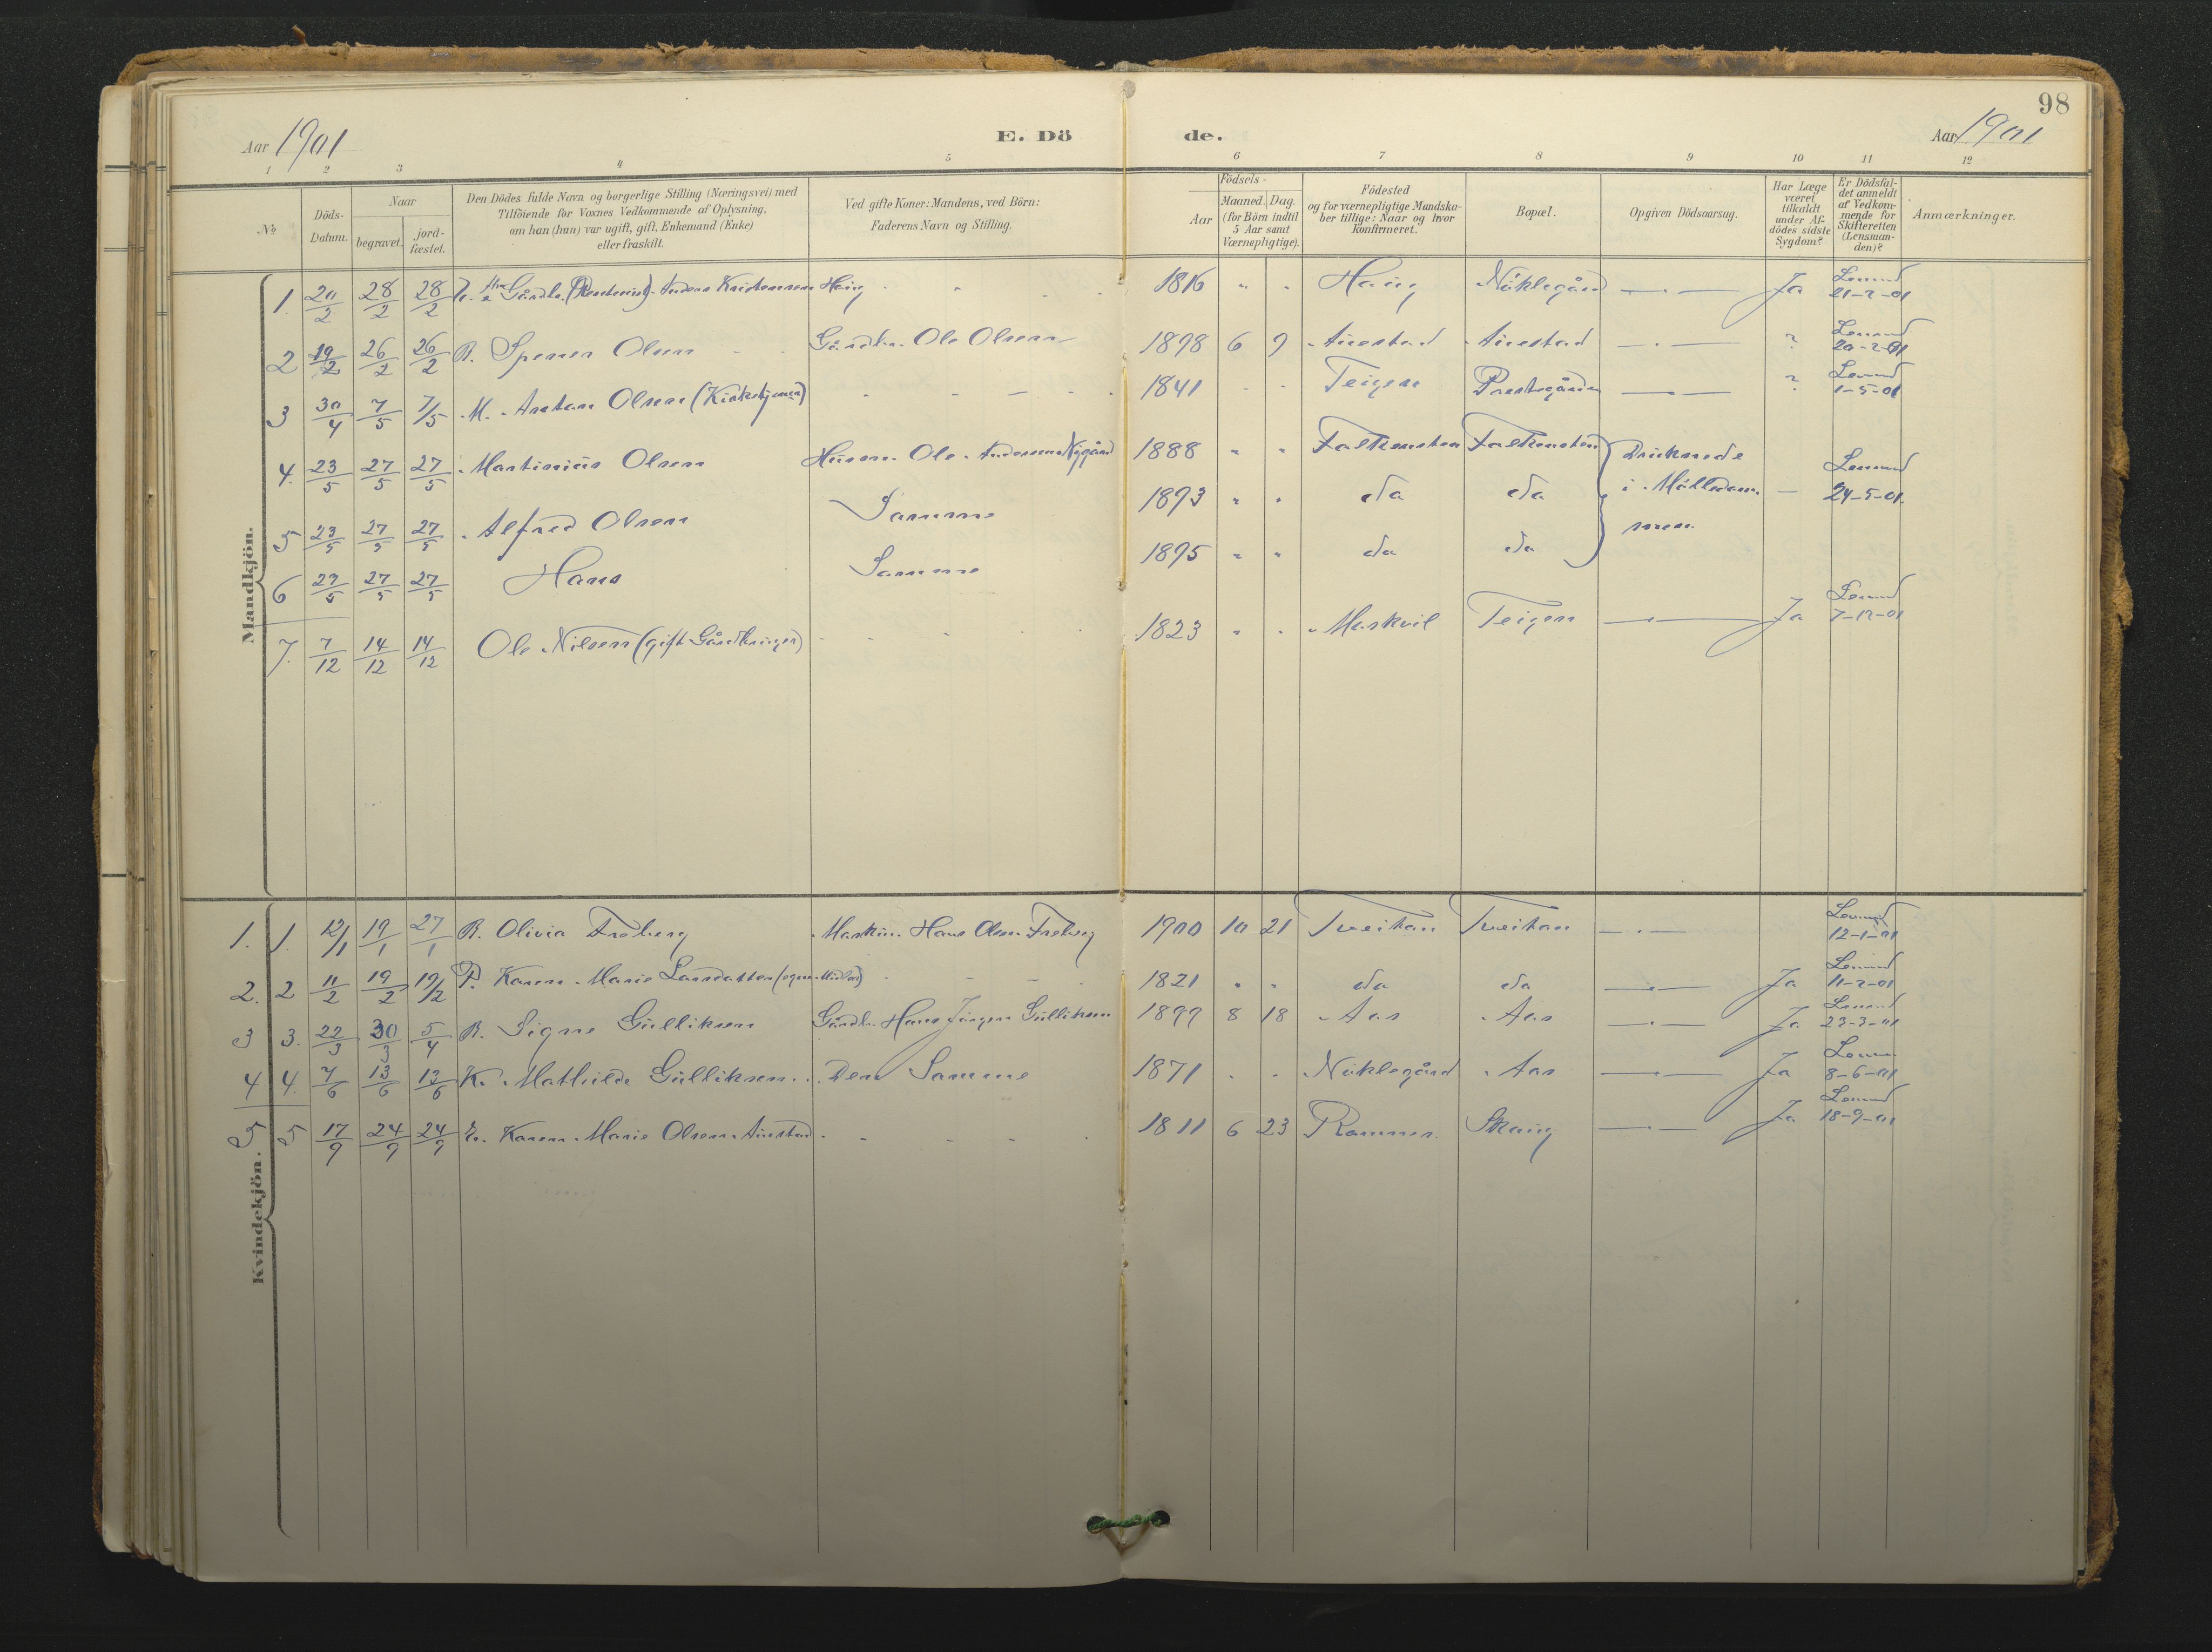 98
Aar 1901 E. Dö de. Aar 1901
1 2 3 4 5 6 7 8 9 10 11 12
№ Döds-Datum. Naar begravet. jord-fæstet. Den Dödes fulde Navn og borgerlige Stilling (Næringsvei) med Tilföiende for Voxnes Vedkommende af Oplysning, om han (hun) var ugift, gift, Enkemand (Enke) eller fraskilt. Ved gifte Koner: Mandens, ved Börn: Faderens Navn og Stilling. Födsels- Aar Maaned. Dag. (for Börn indtil 5 Aar samt Værnepligtige). Födested og for værnepligtige Mandska-ber tillige: Naar og hvor Konfirmeret. Bopæl. Opgiven Dödsaarsag. Har Læge været tilkaldt under Af-dödes sidste Sygdom? Er Dödsfal-det anmeldt af Vedkom-mende for Skifteretten (Lensman-den)? Anmærkninger.
Mandkjön.
1. 20/2 28/2 28/2 Gårdbr. Anders Kristensen Haug 1816 " " Haug Nöklegård — Ja Lensmd 21-2-01
2 19/2 26/2 26/2 B. Olsen Gårdbr. Ole Olsen 1898 6 9 Auestad Auestad — ? Lensmd 20-2-01
3 30/4 7/5 7/5 M. Olsen 1841 " " Teigen Prestegården — ? Lensmd 1-5-01
4. 23/5 27/5 27/5 Martinius Olsen Husm. Ole Andersen Nygård 1888 " " Falkensten Falkensten Druknede i Mölledammen — Lensmd 24-5-01.
5 23/5 27/5 27/5 Alfred Olsen Samme 1893 " " do do
6 23/5 27/5 27/5 Hans Samme 1895 " " do do
7. 7/12 14/12 14/12 Ole Nilsen (gift Gårdbruger) 1823 " " Teigen — Ja Lensmd 7-12-01
Kvindekjön.
1. 1. 12/1 19/1 27/1 B. Olivia Froberg Hans Olsen 1900 10 21 Tveitan Tveitan — Lensmd 12-1-01
2. 2 11/2 19/2 19/2 P. Karen Marie Larsdatter (egne Midler) 1821 " " do do — Ja Lensmd 11-2-01
3 3. 22/3 30/3 5/4 B. Signe Gulliksen Gårdbr. Hans Jörgen Gulliksen 1899 8 18 Aas Aas — Ja Lensmd 23-3-01
4 4. 7/6 13/6 13/6 K. Mathilde Gulliksen Den Samme 1871 " " Nöklegård Aas — Ja Lensm 8-6-01
5 5 17/9 24/9 24/9 E. Karen Marie Olsen Auestad 1811 6 23 Ramnes Skaug — Ja Lensmd 18-9-01